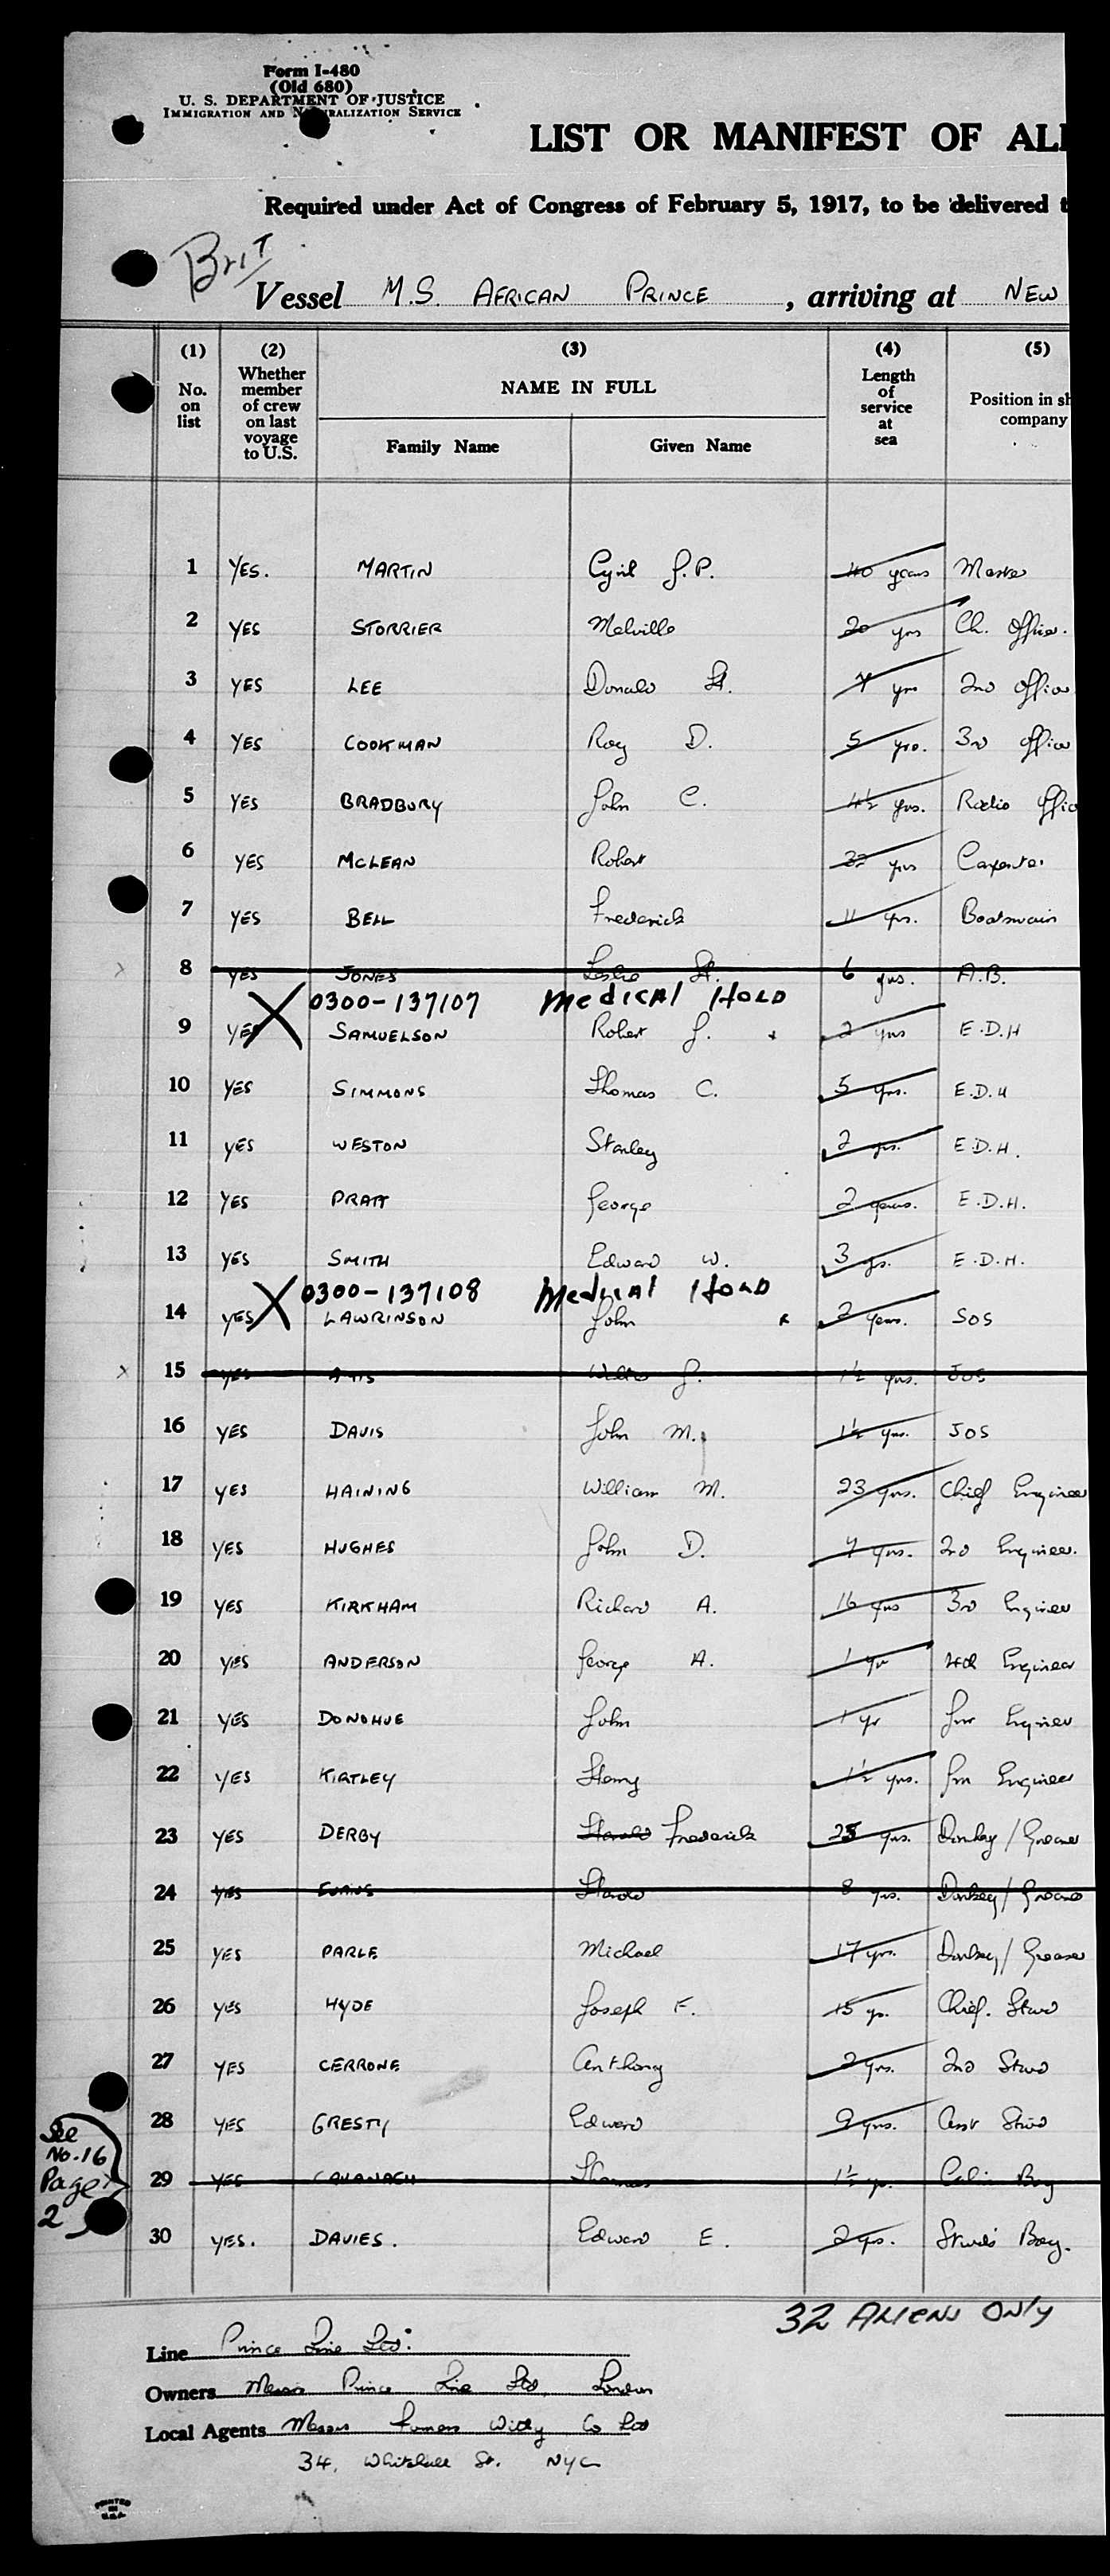 Form I-480
(Old 680)
U. S. DEPARTMENT OF JUSTICE
IMMIGRATION AND NATURALIZATION SERVICE
LIST OR MANIFEST OF
Required under Act of Congress of February 5, 1917, to be delivered
BRIT
Vessel M.S. AFRICAN PRINCE, arriving at NEW
(1) (2) (3) (4) (5)
No. on list Whether member of crew on last voyage to U.S. NAME IN FULL Length of service at sea Position in company
Family Name Given Name
1 YES. MARTIN Cyril J.P. 40 years Master
2 YES STORRIER Melville 20 yrs Ch. Officer.
3 YES LEE Donald H. 7 yrs 2nd Officer
4 YES COOKMAN Roy D. 5 yrs. 3rd Officer
5 YES BRADBURY John C. 4½ yrs. Radio
6 YES MCLEAN Robert yrs Carpenter
7 YES BELL Frederick 11 yrs. Boatswain
8 YES JONES Leslie H. 6 yrs. A.B.
0300-137107 MEDICAL HOLD
9 YES SAMUELSON Robert J. 2 yrs E.D.H
10 YES SIMMONS Thomas C. 5 yrs. E.D.H
11 YES WESTON Stanley 2 yrs. E.D.H.
12 YES PRATT George 2 years. E.D.H.
13 YES SMITH Edward W. 3 yrs. E.D.H.
0300-137108 MEDICAL HOLD
14 YES LAWRINSON John 2 years. SOS
15 YES J. 1½ yrs. JOS
16 YES DAVIS John M. 1½ yrs. JOS
17 YES HAINING William M. 23 yrs. Chief Engineer
18 YES HUGHES John D. 7 yrs. 2nd Engineer.
19 YES KIRKHAM Richard A. 16 yrs 3rd Engineer
20 YES ANDERSON George A. 1 yr 4th Engineer
21 YES DONOHUE John 1 yr Jnr Engineer
22 YES KIRTLEY Henry 1½ yrs. Jnr Engineer
23 YES DERBY Harold Frederick 25 yrs. Donkey/Greaser
24 YES EVANS Harold 8 yrs. Donkey/Greaser
25 YES PARLE Michael 17 yrs. Donkey/Greaser
26 YES HYDE Joseph F. 15 yrs. Chief. Stwd
27 YES CERRONE Anthony 2 yrs. 2nd Stwd
28 YES GRESTY Edward 9 yrs. Asst Stwd
See No. 16 Page 2
29 YES CAVANAGH Thomas 1½ yr. Cabin Boy
30 YES. DAVIES. Edward E. 2 yrs. Stwd's Boy.
32 ALIENS ONLY
Line Prince Line Ltd.
Owners Messrs Prince Line Ltd, London
Local Agents Messrs Furness Withy Co Ltd
34, Whitehall St. NYC
PRINTED IN U.S.A.